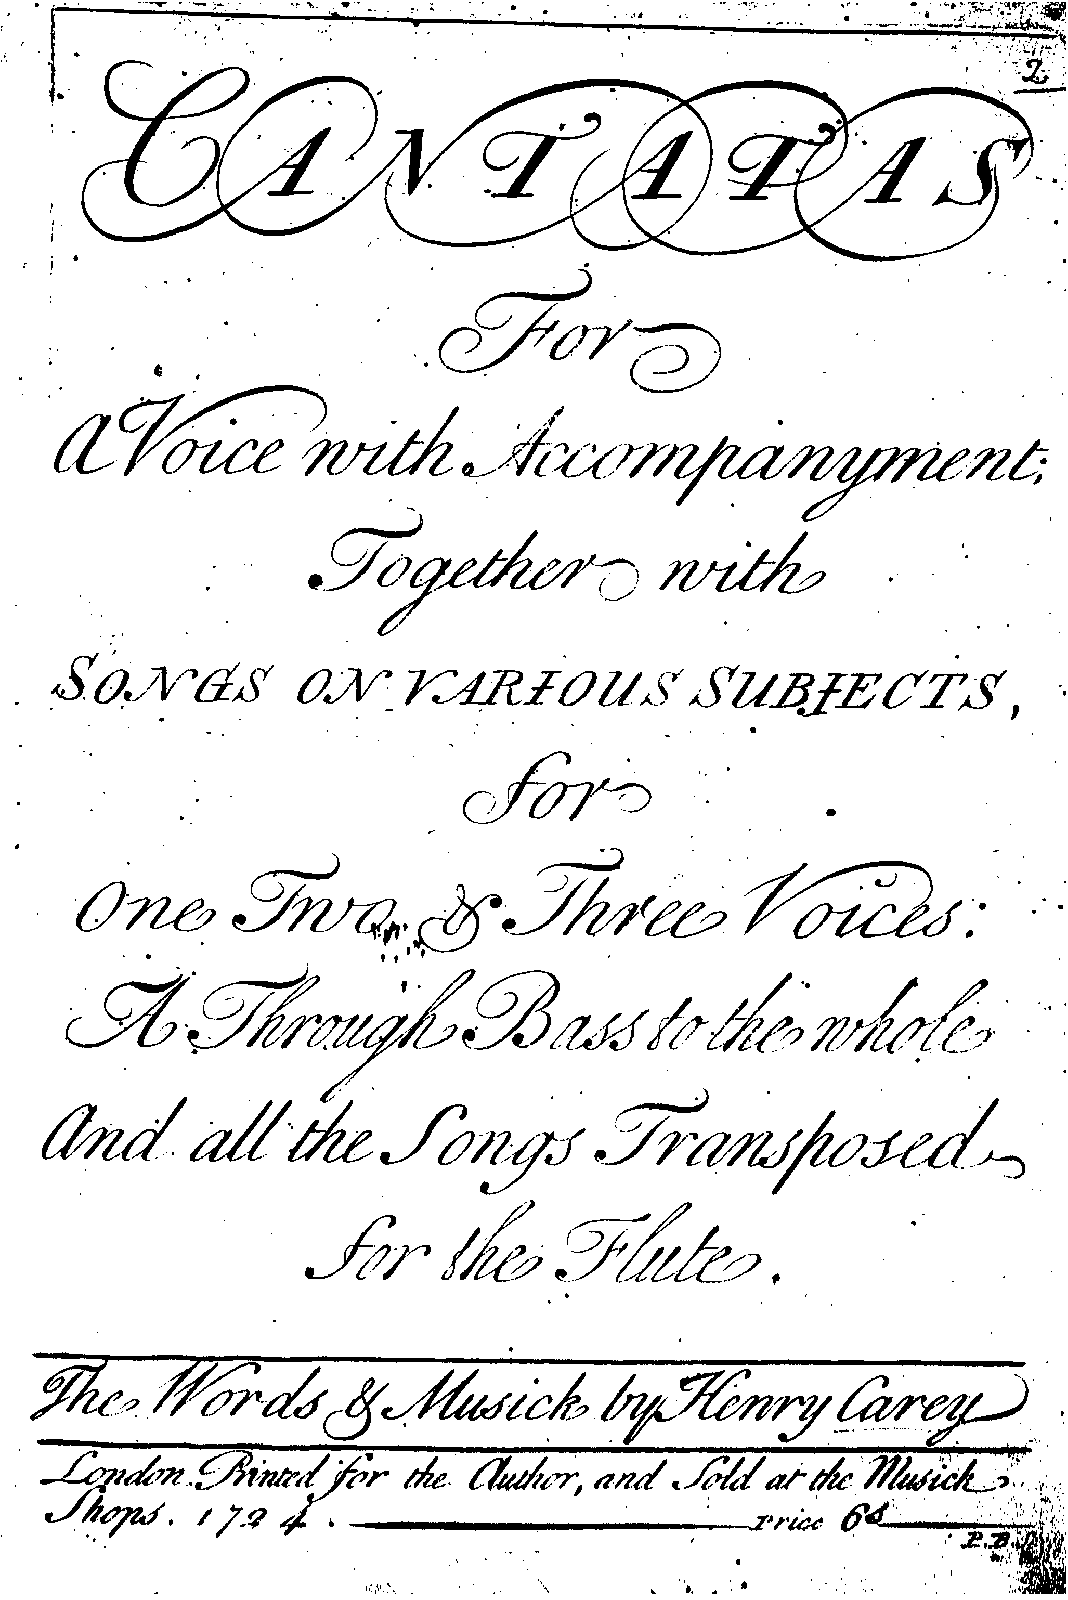 2
CANTATAS
For
A Voice with Accompanyment;
Together with
SONGS ON VARIOUS SUBJECTS,
for
One Two & Three Voices:
A Through Bass to the whole
And all the Songs Transposed
for the Flute.
The Words & Musick by Henry Carey
London Printed for the Author, and Sold at the Musick
Shops. 1724. Price 6s
P.B.